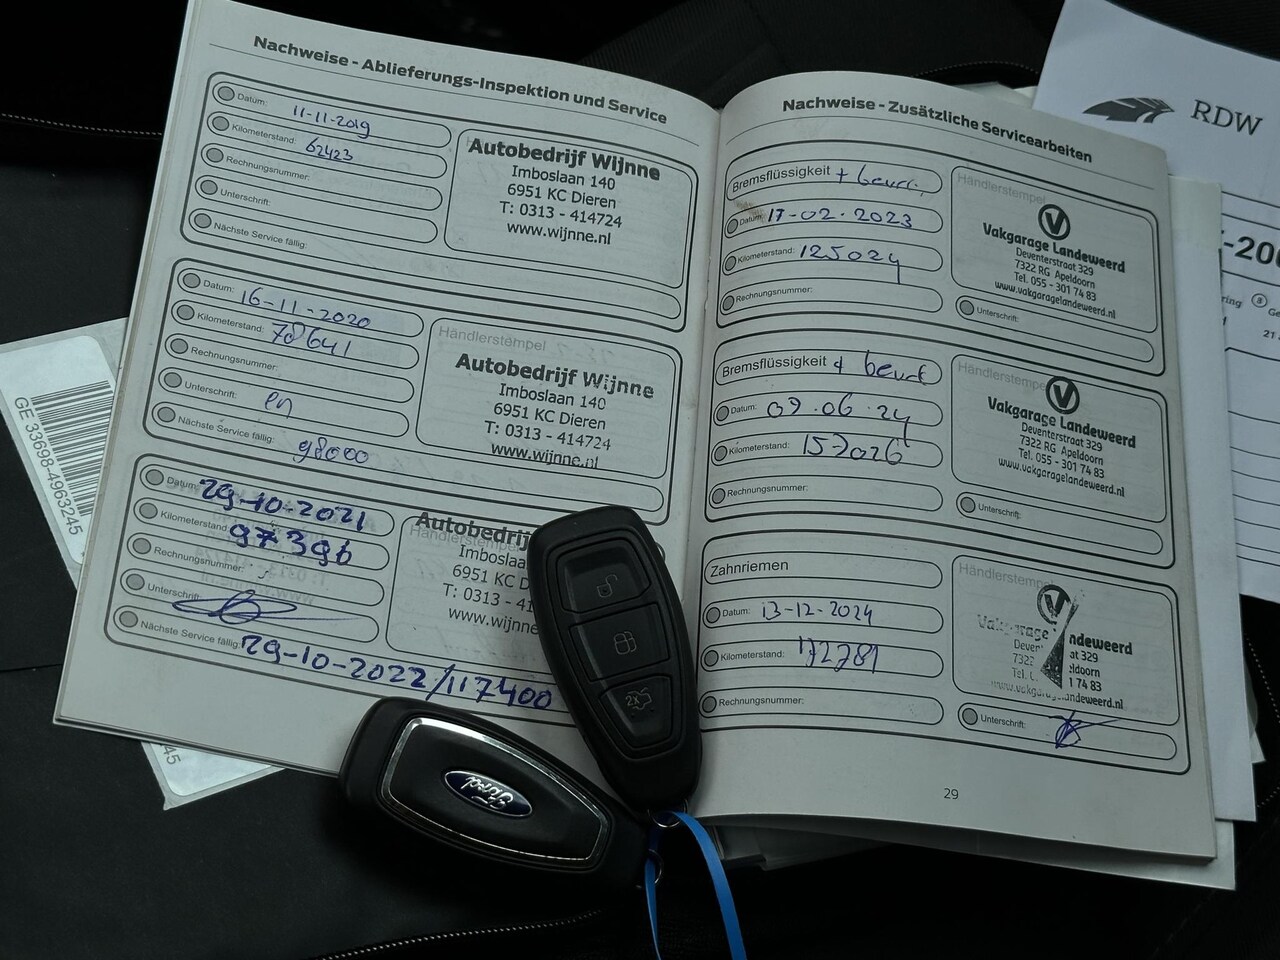 Nachweise - Ablieferungs-Inspektion und Service
Datum: 11-11-2019
Kilometerstand: 62423
Rechnungsnummer:
Unterschrift:
Nächste Service fällig:
Autobedrijf Wijnne
Imboslaan 140
6951 KC Dieren
T: 0313 - 414724
www.wijnne.nl
Datum: 16-11-2020
Kilometerstand: 78641
Rechnungsnummer:
Unterschrift:
Nächste Service fällig: 98000
Händlerstempel
Autobedrijf Wijnne
Imboslaan 140
6951 KC Dieren
T: 0313 - 414724
www.wijnne.nl
Datum: 29-10-2021
Kilometerstand: 97396
Rechnungsnummer:
Unterschrift:
Nächste Service fällig: 29-10-2022/117400
Autobedrij
Händlerstempel
Imboslaa
6951 KC D
T: 0313 - 41
www.wijnne
Nachweise - Zusätzliche Servicearbeiten
Bremsflüssigkeit +
Datum: 17-02-2023
Kilometerstand: 125024
Rechnungsnummer:
Händlerstempel
Vakgarage Landeweerd
Deventerstraat 329
7322 RG Apeldoorn
Tel. 055 - 301 74 83
www.vakgaragelandeweerd.nl
Unterschrift:
Bremsflüssigkeit + beurt
Datum: 09.06.24
Kilometerstand: 157026
Rechnungsnummer:
Händlerstempel
Vakgarage Landeweerd
Deventerstraat 329
7322 RG Apeldoorn
Tel. 055 - 301 74 83
www.vakgaragelandeweerd.nl
Unterschrift:
Zahnriemen
Datum: 13-12-2024
Kilometerstand: 172781
Rechnungsnummer:
Händlerstempel
Vakgarage ndeweerd
Deven at 329
7322 eldoorn
Tel. 1 74 83
www.vakgaragelandeweerd.nl
Unterschrift:
29
RDW
GE 33698-4963245
45
Ford
2x